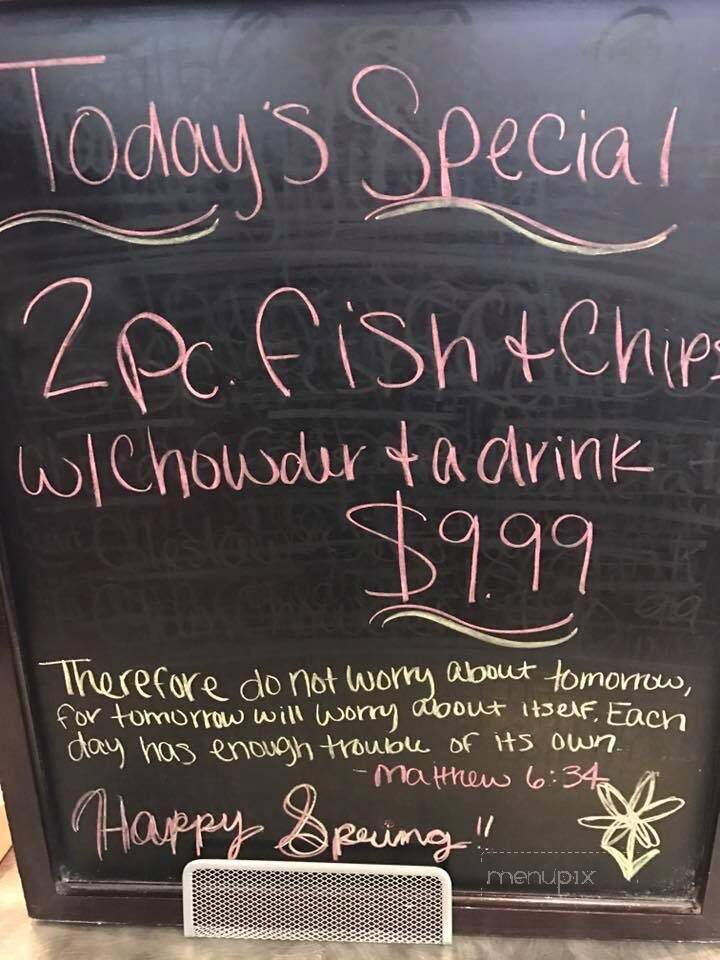 Today's Special
2 Pc. Fish + Chips
w/ Chowder + a drink
$9.99
Therefore do not worry about tomorrow,
for tomorrow will worry about itself. Each
day has enough trouble of its own.
- Matthew 6:34
Happy Spring!!
menupix